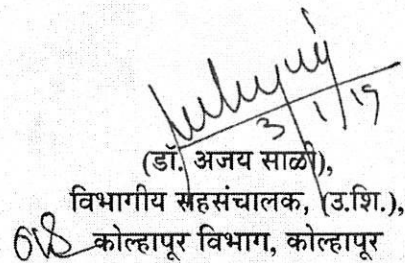 3/1/19
(डॉ. अजय साळी),
विभागीय सहसंचालक, (उ.शि.),
कोल्हापूर विभाग, कोल्हापूर